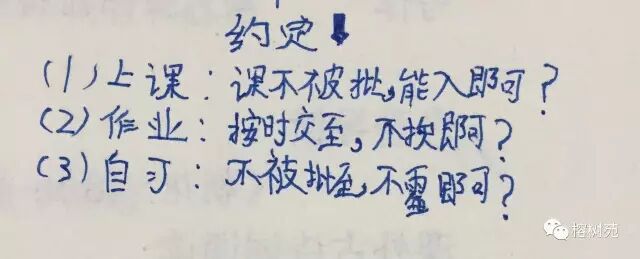 约定⬇
(1)上课：课不被批，能入即可？
(2)作业：按时交至，不挨即可？
(3)自习：不被批至，不露即可？
榕树苑